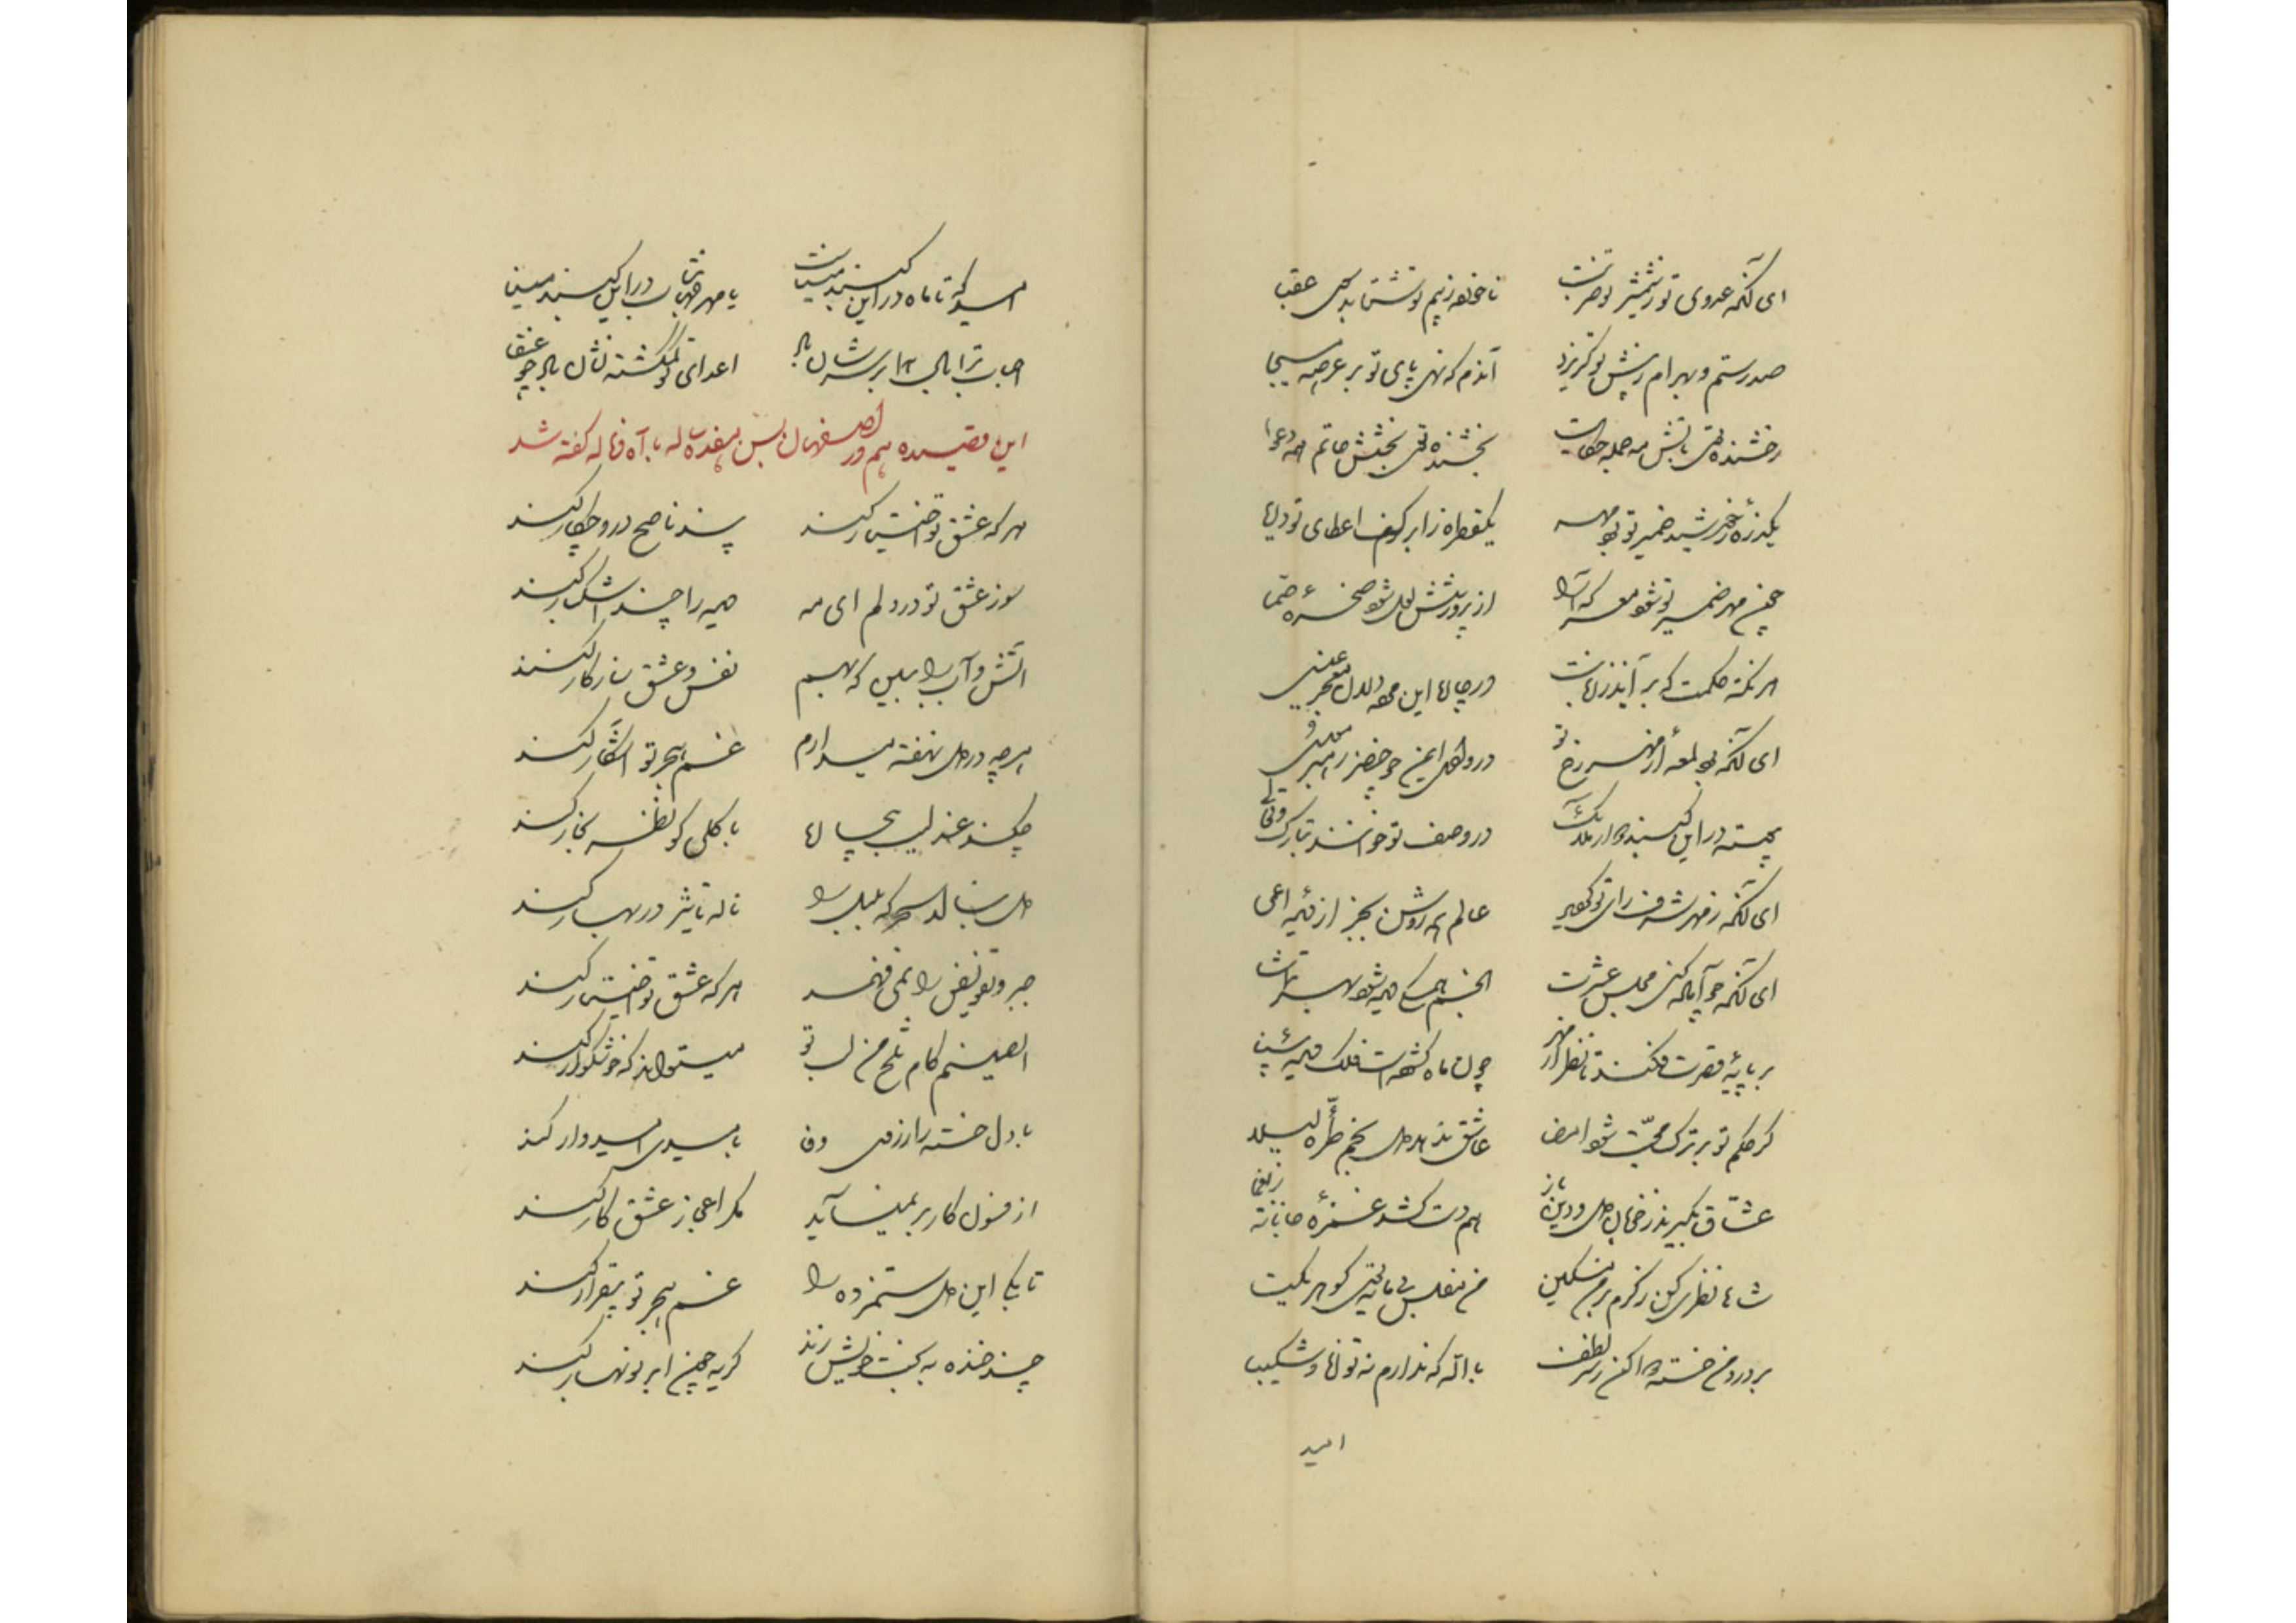 ای آنکه عدوی تو ز شمشیر تو ضربت ناخورده ز بیم تو شتابد بعقبا
صد رستم و بهرام ز پیش تو گریزد آندم که نهی پای تو بر عرصه هیجا
رخشنده تابش مه جمله بخشنده بخشش حاتم همه
یکذره ز خورشید ضمیر تو بود مهر یکقطره ز ابر کف اعطای تو دریا
چون مهر ضمیر تو شود مهر که آنرا از پرورشش لعل شود صخره صما
هر نکته حکمت که بر آید ز زبانت این مرده دلان معجز عیسی
ای آنکه بود لمعه از مهر رخ تو در وادی ایمن چو خضر رهبر موسی
پیوسته در این گنبد دوار ملایک در وصف تو خوانند تبارک و تعالی
ای آنکه ز مهر شرف رای تو گردید عالم همه روشن بجز از دیده اعمی
ای آنکه چو آماده کنی مجلس عشرت انجم همگی جمله شود بهر تماشا
بر پایه قصرت فکند تا نظر از مهر چون ماه گشوده است فلک دیده بینا
گر حکم تو بر ترک محبت شود امضا عاشق ندهد دل بخم طره لیلا
عشاق بگیرند ز خوبان دل و دین باز هم دست کشد غمزه جانانه ز یغما
شاها نظری کن ز کرم بر من مسکین من مفلس بی مایه توئی گوهر یکتا
بر درد من خسته دوا کن ز سر لطف بالله که ندارم نه توانا و شکیبا
امید
امید که تا ماه در این گنبد میناست یا مهر جهانتاب در این گنبد مینا
احباب ترا تاج بر سرشان باد اعدای تو گشته نشان باد چو عنقا
این قصیده هم در اصفهان بسن هفده ساله با آه و ناله گفته شد
هر که عشق تو اختیار کند پند ناصح در او چکار کند
سوز عشق تو در دلم ای مه هیمه را چند اشکبار کند
آتش و آب را ببین که بهم نفس و عشق سازگار کند
هر چه در دل نهفته میدارم غم هجر تو آشکار کند
چکند عندلیب بیچاره با گلی کو نظر بخار کند
دل بنالد سحر که بلبل را ناله تأثیر در بهار کند
جبر و تفویض را نمی فهمد هر که عشق تو اختیار کند
ای صنم کام تلخ من لب تو میتواند که خوشگوار کند
یا دل خسته را ز وفا یا بمیدی امیدوار کند
از فسون کار بر نمیآید مگر اعجاز عشق کار کند
تا بکی این دل ستمزده را غم هجر تو بیقرار کند
چند خنده به بخت خویش زند گریه چون ابر نوبهار کند